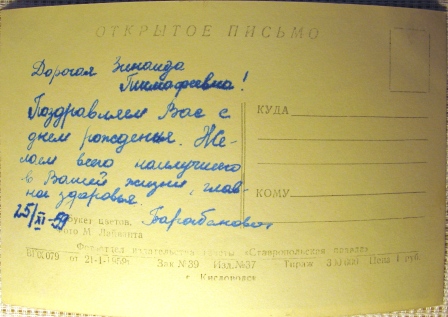 ОТКРЫТОЕ ПИСЬМО
Дорогая Зинаида
Тимофеевна!
Поздравляем Вас с
днем рожденья. Же-
лаем всего наилучшего
в Вашей жизни, глав-
ное здоровья.
25/XI-59
КУДА
КОМУ
Букет цветов.
Фото М. Лабзакта
Филиал издательства газеты «Ставропольская правда»
от 21-I-1959г. Зак №39 Изд. №37 Тираж Цена 1 руб.
г. Кисловодск